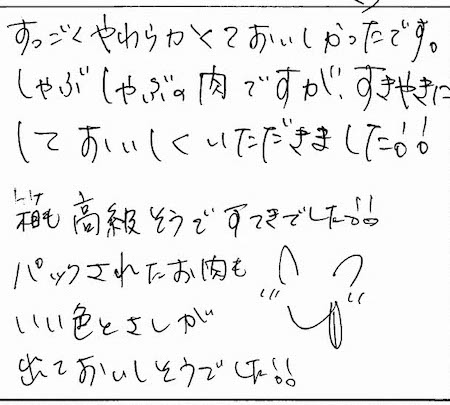 すっごくやわらかくておいしかったです。
しゃぶしゃぶの肉ですが、すきやきに
しておいしくいただきました!!
箱も高級そうですてきでした!!
パックされたお肉も
いい色とさしが
出ておいしそうでした!!